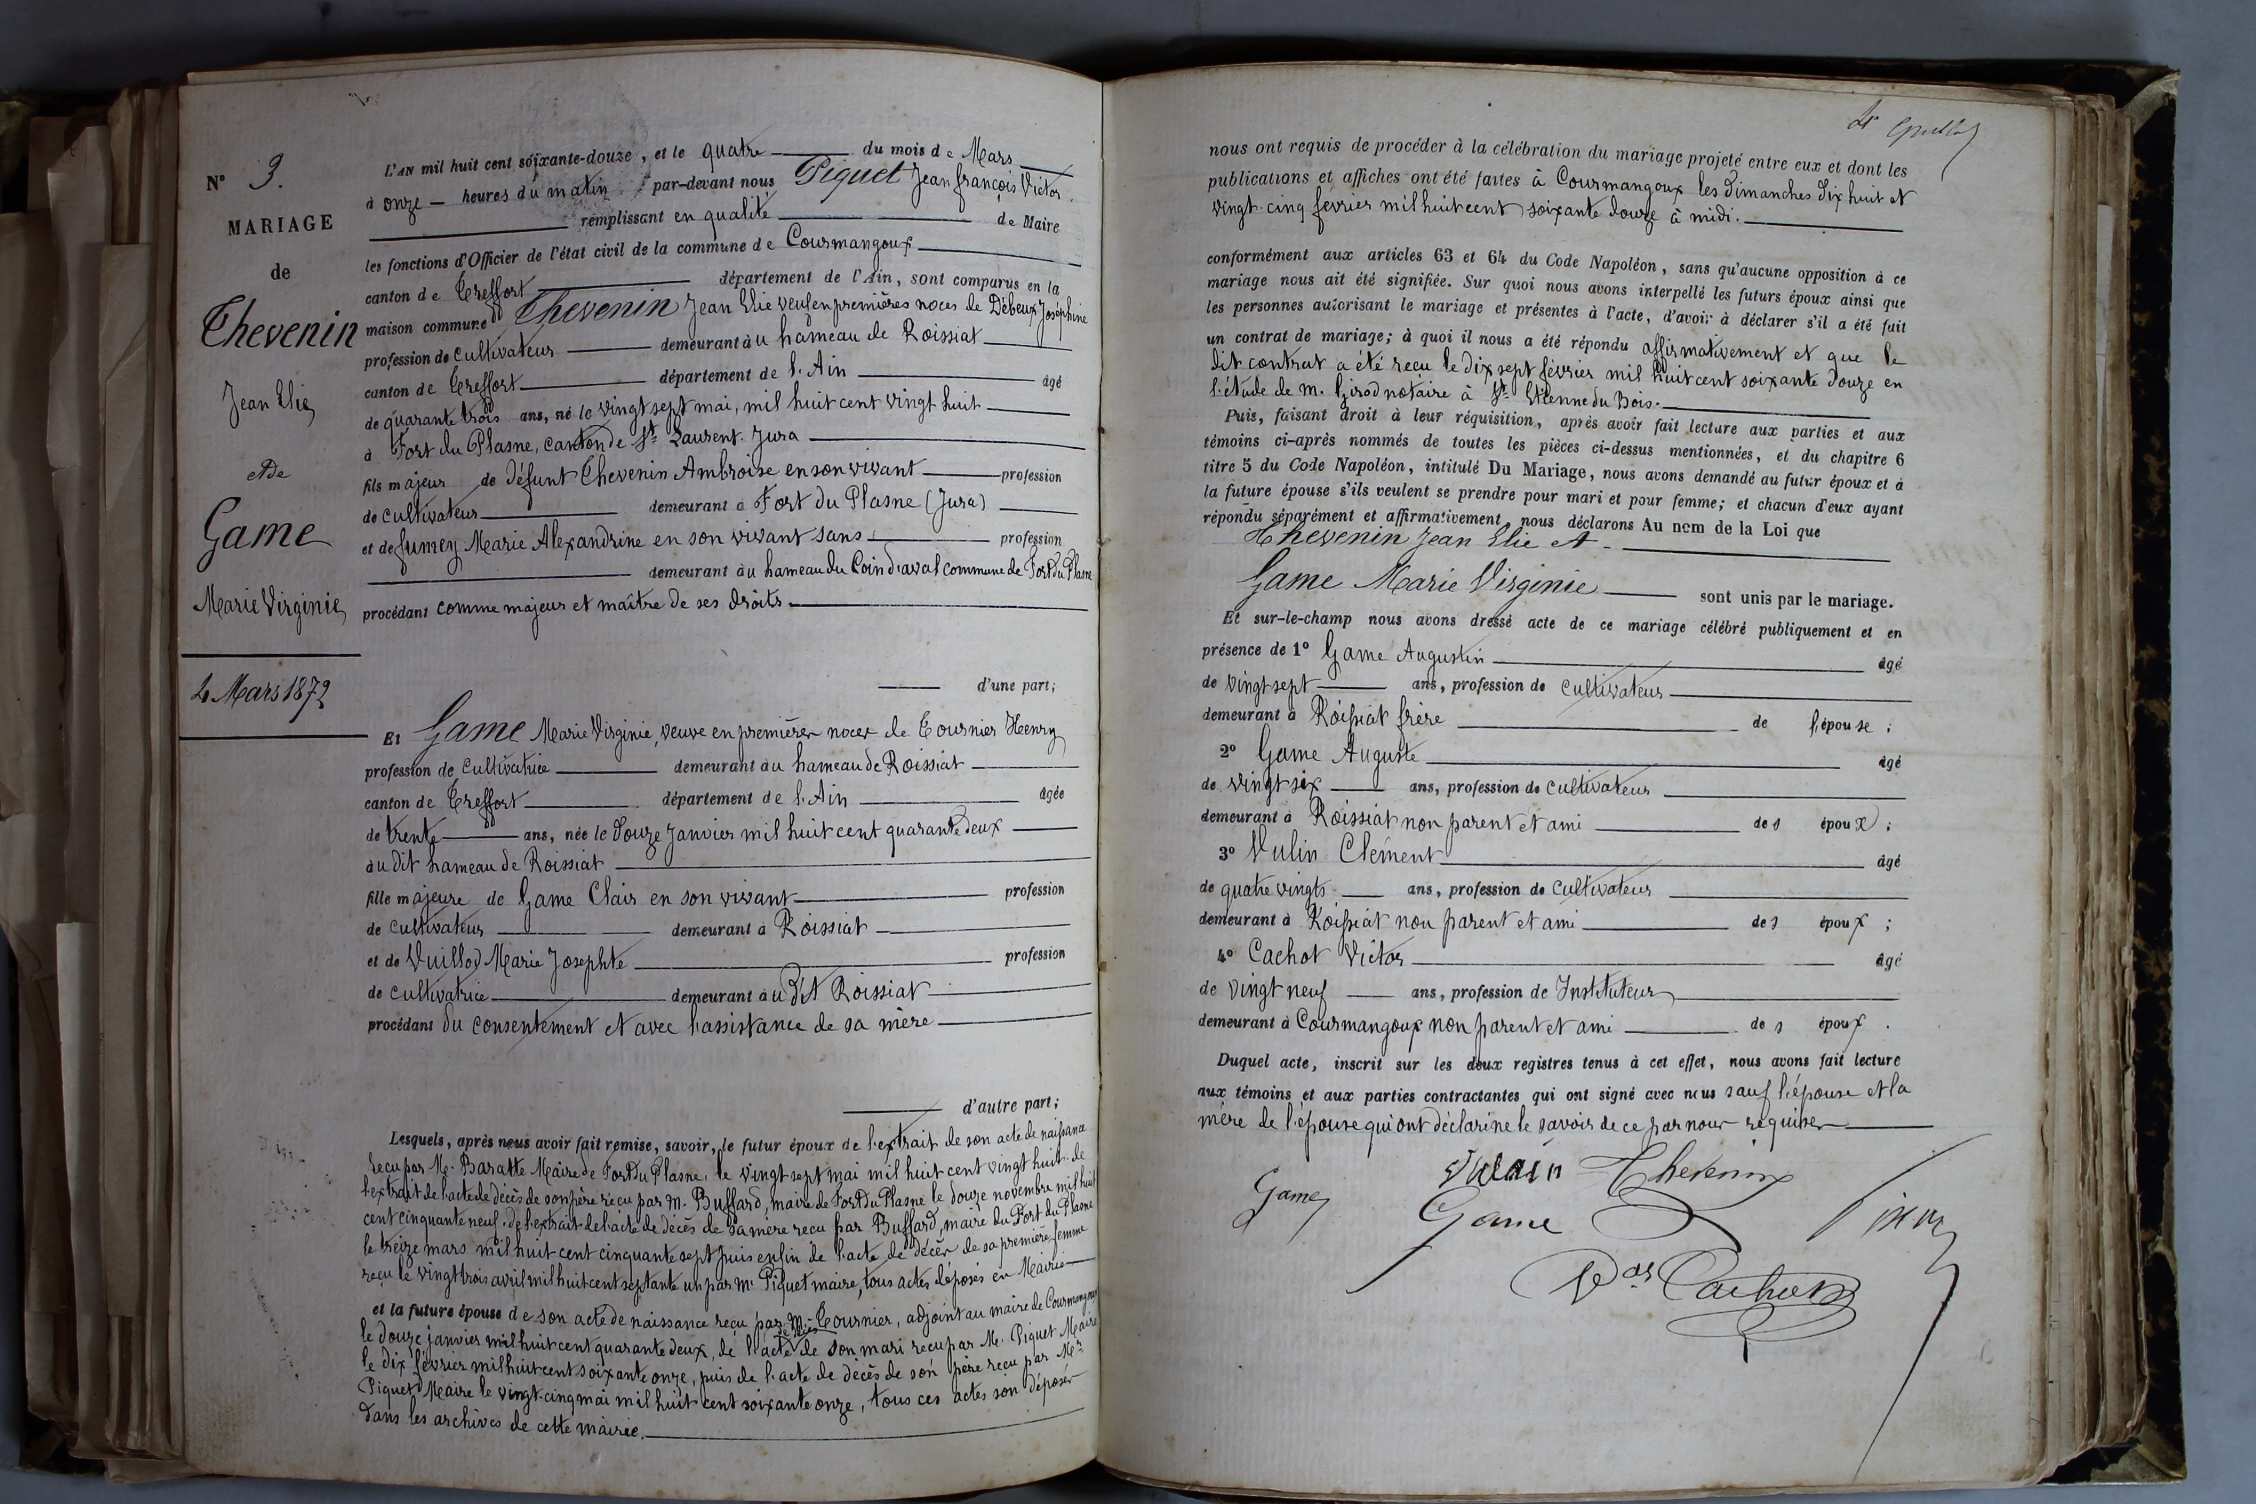 N° 3.
MARIAGE
de
Thevenin
Jean Elie
et de
Game
Marie Virginie
4 Mars 1872
L'AN mil huit cent soixante-douze, et le quatre du mois de Mars
à onze heures du matin par-devant nous Piquet Jean françois Victor
remplissant en qualité de Maire
les fonctions d'Officier de l'état civil de la commune de Courmangoux
canton de Treffort département de l'Ain, sont comparus en la
maison commune Thevenin Jean Elie veuf en premières noces de Débeux Joséphine
profession de cultivateur demeurant au hameau de Roissiat
canton de Treffort département de l'Ain âgé
de quarante trois ans, né le vingt sept mai, mil huit cent vingt huit
à Fort du Plasne, canton de St Laurent. Jura
fils majeur de défunt Thevenin Ambroise en son vivant profession
de cultivateur demeurant à Fort du Plasne (Jura)
et de fumey Marie Alexandrine en son vivant sans profession
demeurant au hameau du Coin d'aval commune de Fort du Plasne
procédant comme majeur et maître de ses droits
d'une part;
Et Game Marie Virginie, veuve en premières noces de Tournier Henry
profession de cultivatrice demeurant au hameau de Roissiat
canton de Treffort département de l'Ain âgée
de trente ans, née le douze Janvier mil huit cent quarante deux
au dit hameau de Roissiat
fille majeure de Game Clair en son vivant profession
de cultivateur demeurant à Roissiat
et de Vuillod Marie Josephte profession
de cultivatrice demeurant au dit Roissiat
procédant du consentement et avec l'assistance de sa mère
d'autre part;
Lesquels, après nous avoir fait remise, savoir, le futur époux de l'extrait de son acte de naissance
recu par M. Baratte Maire de Fort du Plasne, le vingt sept mai mil huit cent vingt huit. de
l'extrait de l'acte de décès de son père reçu par M. Buffard, maire de Fort du Plasne le douze novembre mil huit
cent cinquante neuf. de l'extrait de l'acte de décès de sa mère recu par Buffard, maire du Fort du Plasne
le treize mars mil huit cent cinquante sept puis enfin de l'acte de décès de sa première femme
reçu le vingt trois avril mil huit cent septante un par Mr Piquet maire, tous actes déposés en Mairie
et la future épouse de son acte de naissance reçu par M. Tournier, adjoint au maire de Courmangoux
le douze janvier mil huit cent quarante deux, de l'acte de décès de son mari recu par M. Piquet Maire
le dix février mil huit cent soixante onze, puis de l'acte de décès de son père reçu par Mr
Piquet Maire le vingt-cinq mai mil huit cent soixante onze, tous ces actes son déposés
dans les archives de cette mairie.
nous ont requis de procéder à la célébration du mariage projeté entre eux et dont les
publications et affiches ont été faites à Courmangoux les dimanches dix huit et
vingt-cinq février mil huit cent soixante douze à midi.
conformément aux articles 63 et 64 du Code Napoléon, sans qu'aucune opposition à ce
mariage nous ait été signifiée. Sur quoi nous avons interpellé les futurs époux ainsi que
les personnes autorisant le mariage et présentes à l'acte, d'avoir à déclarer s'il a été fait
un contrat de mariage; à quoi il nous a été répondu affirmativement et que le
dit contrat a été reçu le dix sept février mil huit cent soixante douze en
l'étude de M. Girod notaire à St Etienne du Bois.
Puis, faisant droit à leur réquisition, après avoir fait lecture aux parties et aux
témoins ci-après nommés de toutes les pièces ci-dessus mentionnées, et du chapitre 6
titre 5 du Code Napoléon, intitulé Du Mariage, nous avons demandé au futur époux et à
la future épouse s'ils veulent se prendre pour mari et pour femme; et chacun d'eux ayant
répondu séparément et affirmativement, nous déclarons Au nom de la Loi que
Thevenin Jean Elie et
Game Marie Virginie sont unis par le mariage.
Et sur-le-champ nous avons dressé acte de ce mariage célébré publiquement et en
présence de 1° Game Augustin âgé
de vingt sept ans, profession de cultivateur
demeurant à Roissiat frère de l'épouse;
2° Game Auguste âgé
de vingt six ans, profession de cultivateur
demeurant à Roissiat non parent et ami des époux;
3° Vulin Clément âgé
de quatre vingts ans, profession de cultivateur
demeurant à Roissiat non parent et ami des époux;
4° Cachot Victor âgé
de vingt neuf ans, profession de Instituteur
demeurant à Courmangoux non parent et ami des époux.
Duquel acte, inscrit sur les deux registres tenus à cet effet, nous avons fait lecture
aux témoins et aux parties contractantes qui ont signé avec nous sauf l'épouse et la
mère de l'épouse qui ont déclaré ne le savoir de ce par nous requises
Vulain Thevenin
Game
Game
Cachot